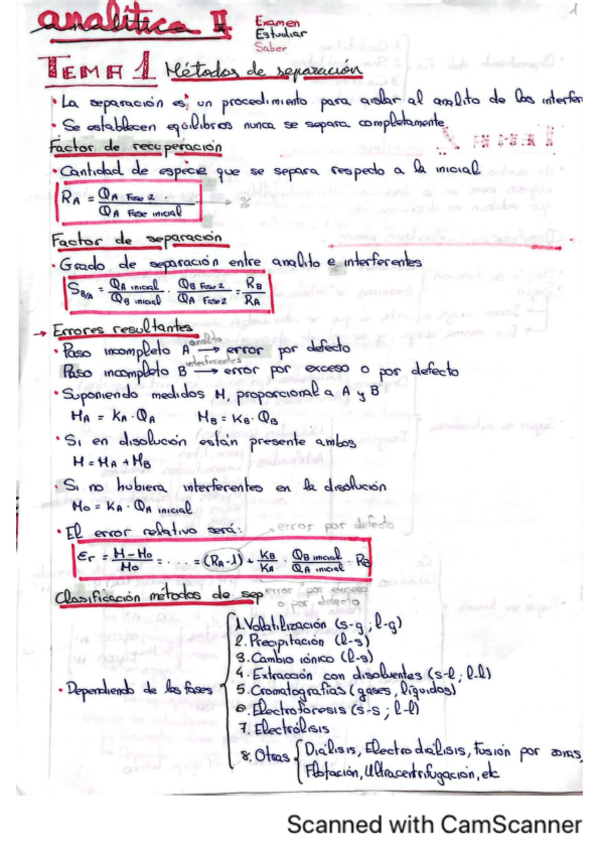 analítica II
Examen
Estudiar
Saber
1
TEMA 1 Métodos de separación
· La separación es; un procedimiento para aislar al analito de los interfer
· Se establecen equilibrios nunca se separa completamente
Factor de recuperación
· Cantidad de especie que se separa respecto a la inicial
RA = QA Fase 2 / QA Fase inicial → %
Factor de separación
· Grado de separación entre analito e interferentes
SB/A = QA inicial / QB inicial · QB Fase 2 / QA Fase 2 = RB / RA
→ Errores resultantes
· Paso incompleto A analito → error por defecto
Paso incompleto B interferentes → error por exceso o por defecto
· Suponiendo medidas M, proporcional a A y B
MA = KA · QA MB = KB · QB
· Si en disolución están presente ambos
M = MA + MB
· Si no hubiera interferentes en la disolución
Mo = KA · QA inicial
· El error relativo será: error por defecto
Er = M - Mo / Mo = .... = (RA - 1) + KB / KA · QB inicial / QA inicial · RB
Clasificación métodos de sep
error por exceso
o por defecto
· Dependiendo de las fases
1. Volatilización (s-g ; l-g)
2. Precipitación (l-s)
3. Cambio iónico (l-s)
4. Extracción con disolventes (s-l ; l-l)
5. Cromatografías (gases, líquidos)
6. Electroforesis (s-s ; l-l)
7. Electrólisis
8. Otras { Diálisis, Electrodiálisis, fusión por zonas,
Flotación, Ultracentrifugación, etc
Scanned with CamScanner